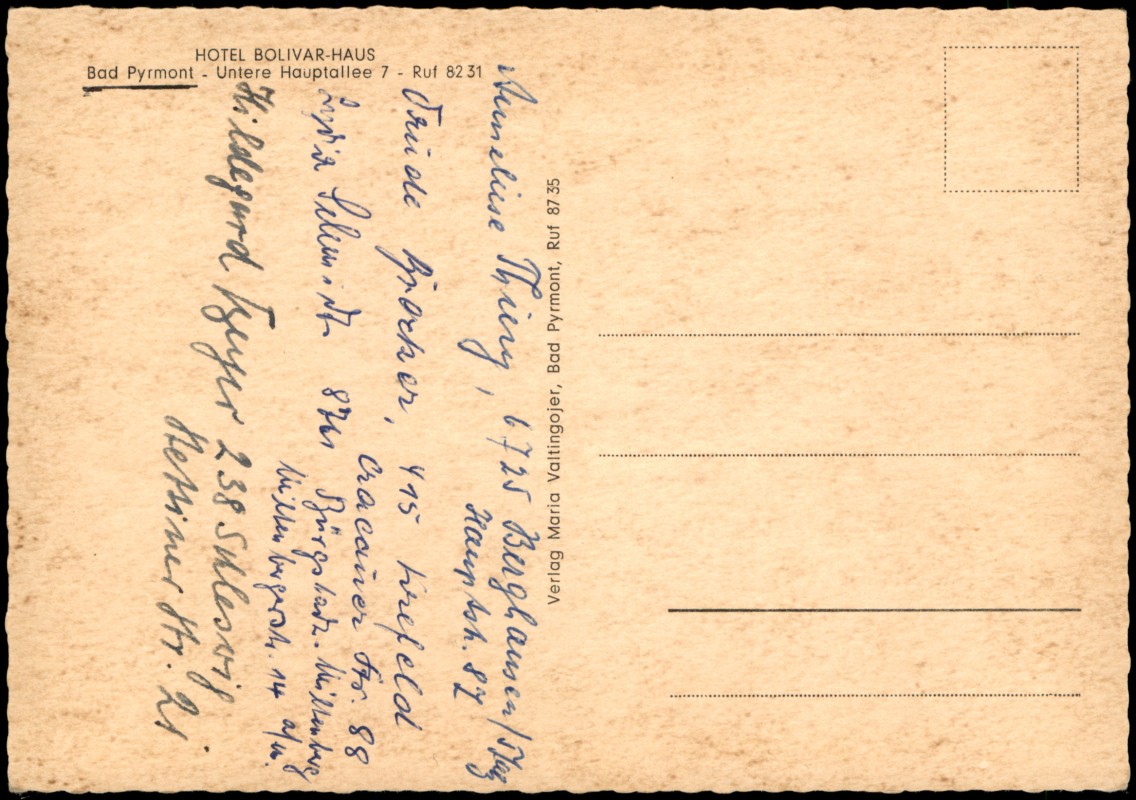 HOTEL BOLIVAR-HAUS
Bad Pyrmont - Untere Hauptallee 7 - Ruf 82 31
Anneliese Thieny, 6725 Berghausen/
Hauptstr. 87
Trude Brocker, 415 Krefeld
Cracauer Str. 88
Lydia Schmidt 8761 Bürgstadt-Miltenberg
Miltenbergerstr. 14 a/M.
Hildegard 238 Schleswig
Stettiner Str. 21
Verlag Maria Valtingojer, Bad Pyrmont, Ruf 87 35